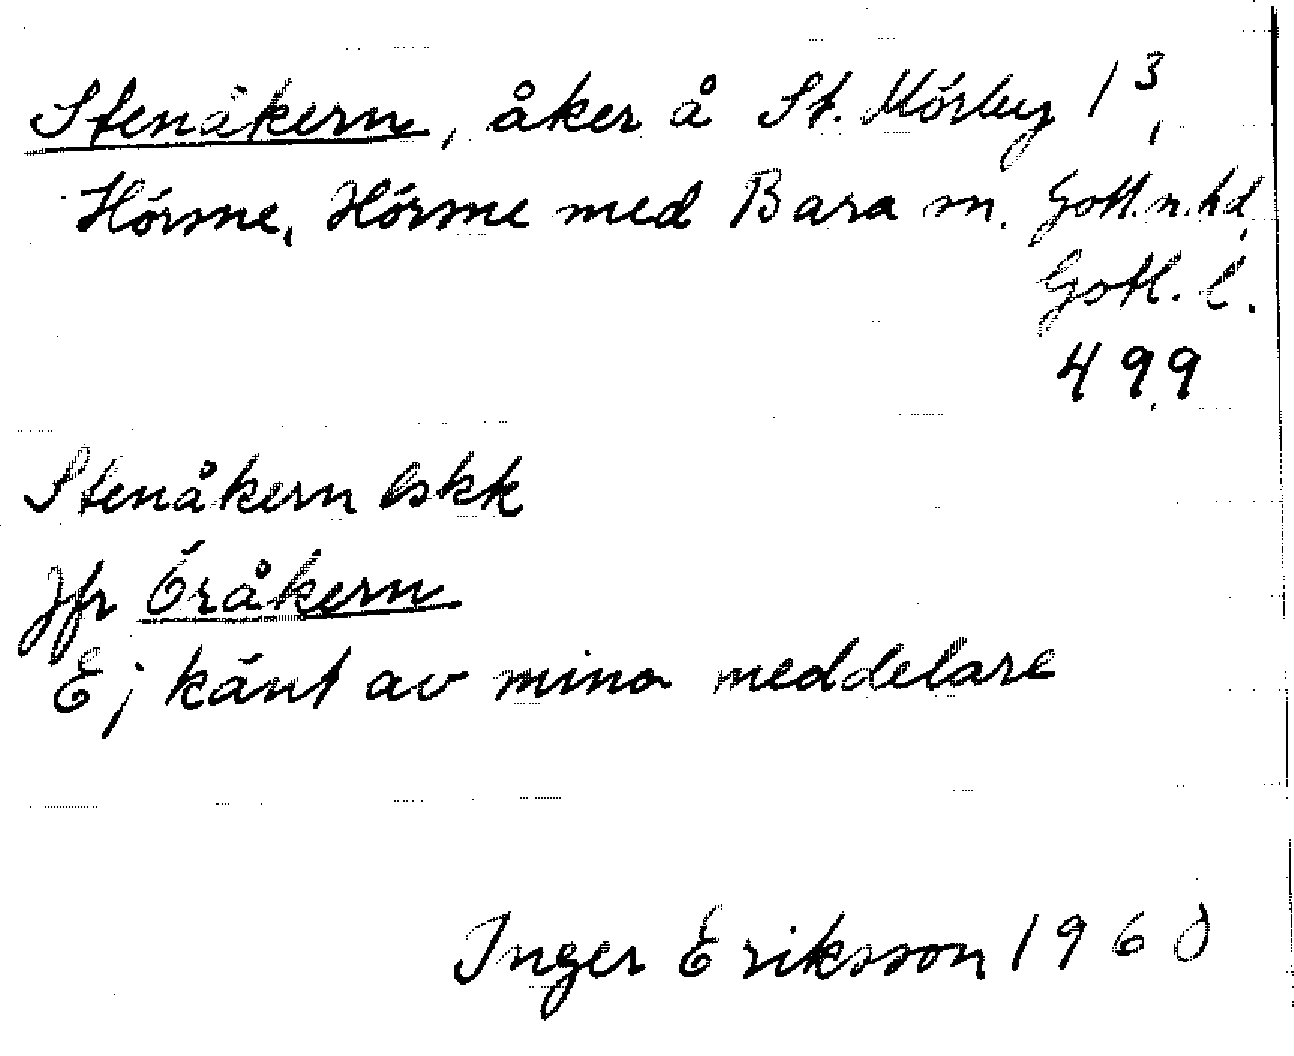 Stenåkern, åker å St. Mörby 1³,
Hörsne, Hörsne med Bara sn. Gotl. n. hd,
Gotl. l.
499
Stenåkern eskk
Jfr Öråkern
Ej känt av mina meddelare
Inger Eriksson 1960